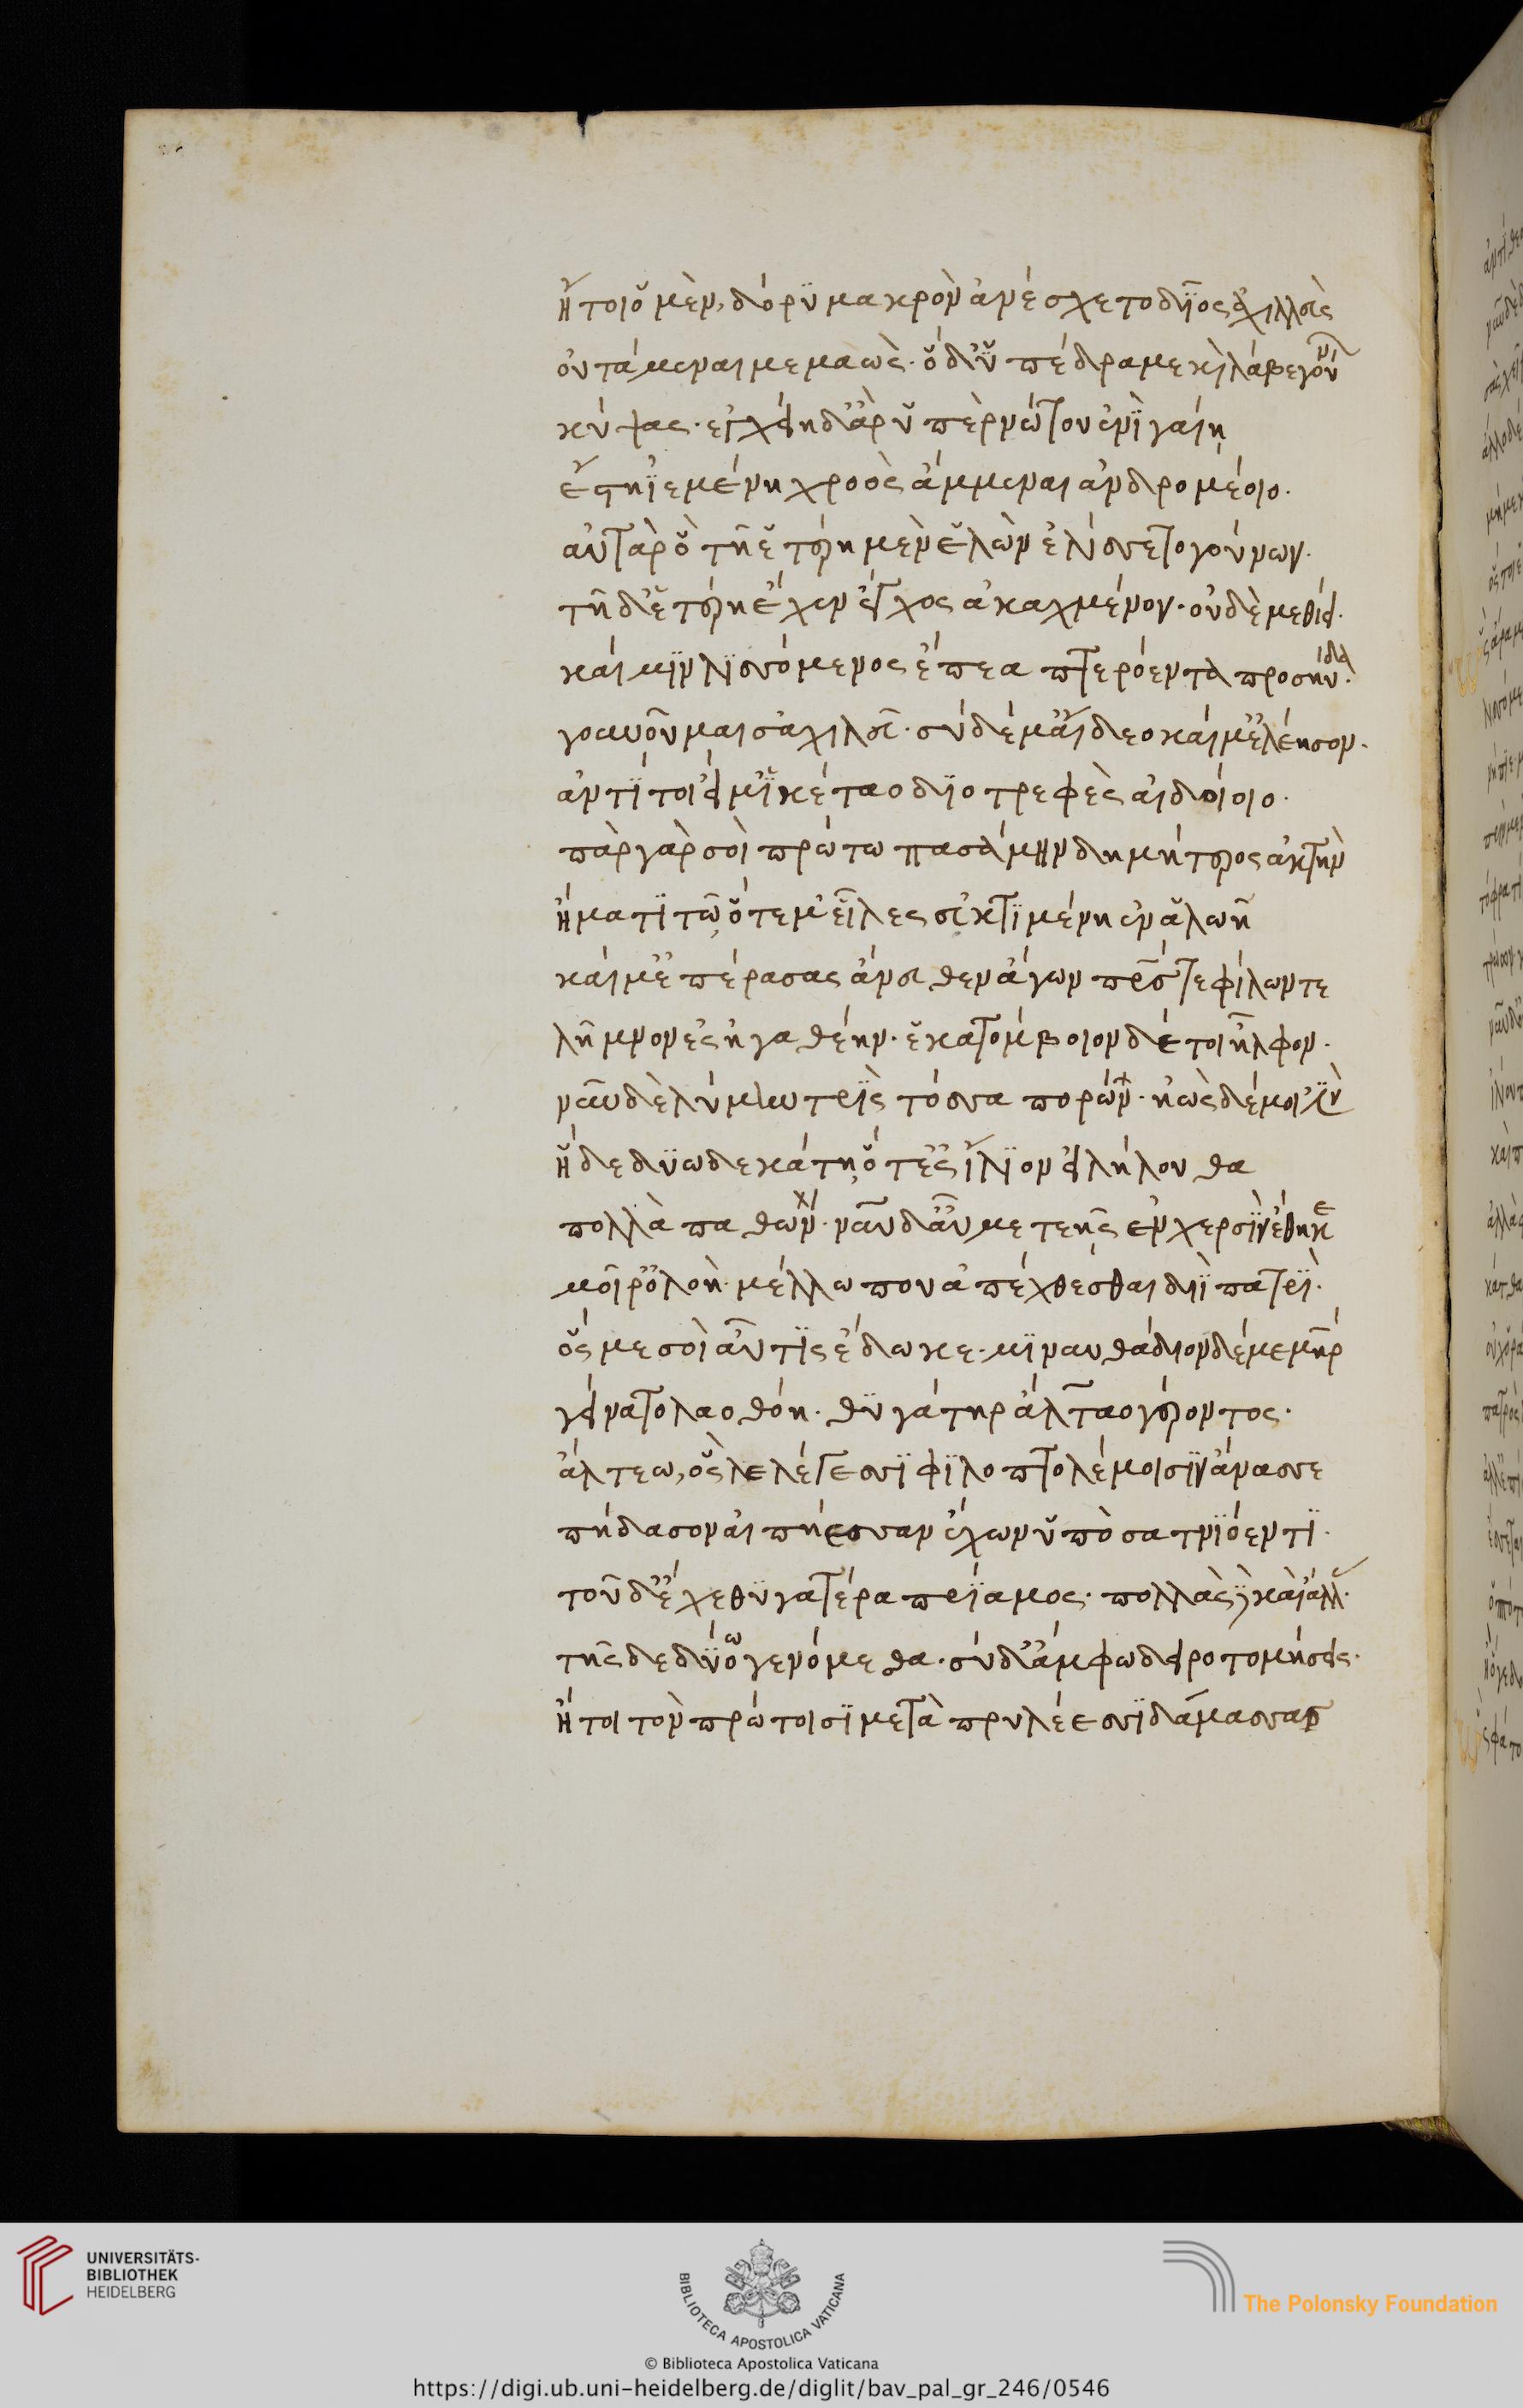 ἤτοι ὃ μὲν, δόρυ μακρὸν ἀνέσχετο δῖος ἀχιλλεὺς
οὐτάμεναι μεμαὼς· ὁ δ' ὑπέδραμε κὶ λάβε γούν
κύψας· ἐγχείη δ' ἂρ ὑπὲρ νώτου ἐνὶ γαίη
ἔστη ἱεμένη χροὸς ἄμμεναι ἀνδρομέοιο.
αὐτὰρ ὃ τῆ ἑτέρη μὲν ἑλὼν ἐλίσσετο γούνων.
τῆ δ' ἑτέρη ἔχεν ἔγχος ἀκαχμένον· οὐδὲ μεθίει.
καί μιν λισσόμενος ἔπεα πτερόεντα προσηύδα.
γουνοῦμαι σ' ἀχιλεῦ· σὺ δέ μ' αἴδεο καί μ' ἐλέησον.
ἀντί τοι εἴμ' ἱκέταο διοτρεφὲς αἰδοίοιο.
πὰρ γὰρ σοὶ πρώτω πασάμην δημήτερος ἀκτὴν
ἤματι τῶ ὅτε μ' εἷλες εὐκτιμένη ἐν ἀλωῆ
καί μ' ἐπέρασας ἄνευθεν ἄγων πρς τε φίλων τε
λῆμνον ἐς ἠγαθέην· ἑκατόμβοιον δέ τοι ἦλφον.
νῦν δὲ λύμην τρὶς τόσσα πορών· ἠὼς δέ μοι ἐστὶν
ἥδε δυωδεκάτη ὅτ' ἐς ἴλιον εἰλήλουθα
πολλὰ παθών· νῦν δ' αὖ με τεῆς ἐν χερσὶν ἔθηκε
μοῖρ' ὀλοή· μέλλω που ἀπέχθεσθαι διὶ πατρί.
ὅς με σοὶ αὖτις ἔδωκε· μινυνθάδιον δέ με μῆρ
γείνατο λαοθόη· θυγάτηρ ἄλταο γέροντος.
ἄλτεω, ὃς λελέγεσσι φιλοπτολέμοισιν ἄνασσε
πήδασον αἰπήεσσαν ἔχων ὑπὸ σατνιόεντι.
τοῦ δ' ἔχε θυγατέρα πρίαμος· πολλὰς δὲ καὶ ἄλλ.
τῆς δὲ δύω γενόμεθα· σὺ δ' ἄμφω δειροτομήσεις.
ἤτοι τὸν πρώτοισι μετὰ πρυλέεσσι δάμασσας
UNIVERSITÄTS-
BIBLIOTHEK
HEIDELBERG
BIBLIOTECA APOSTOLICA VATICANA
The Polonsky Foundation
© Biblioteca Apostolica Vaticana
https://digi.ub.uni-heidelberg.de/diglit/bav_pal_gr_246/0546